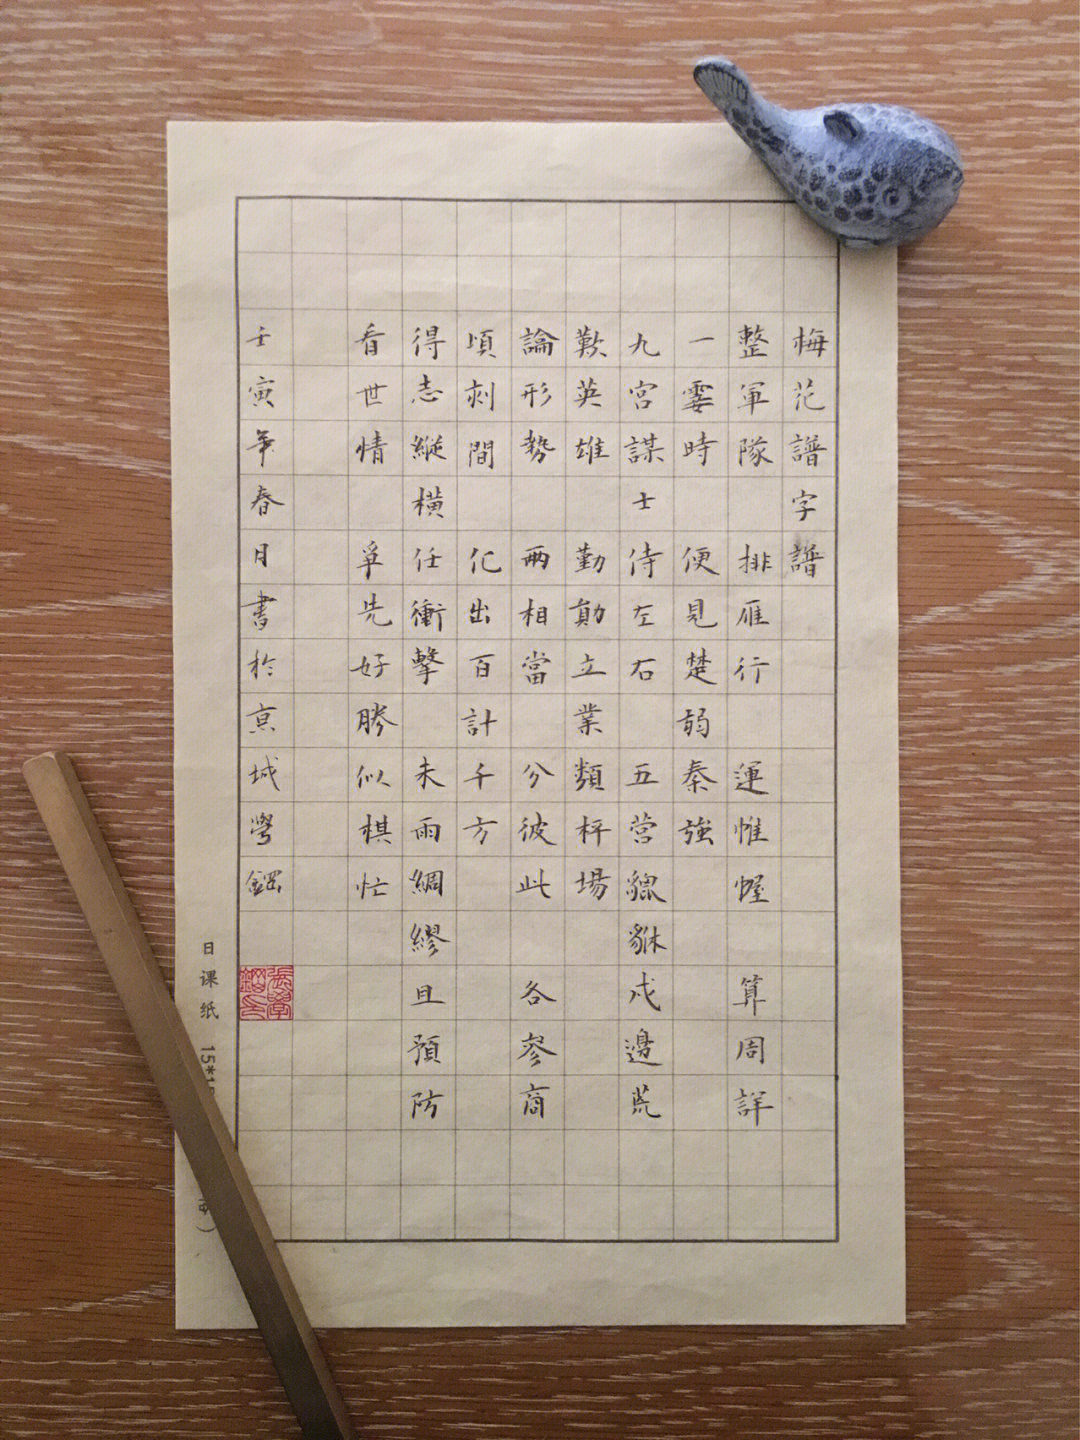 梅花譜字譜
整軍隊 排雁行 運帷幄 算周詳
一霎時 便見楚弱秦強
九宮謀士侍左右 五營貔貅戍邊荒
歎英雄 勤勛立業類枰場
論形勢 兩相當 分彼此 各參商
頃刻間 化出百計千方
得志縱橫任衝擊 未雨綢繆且預防
看世情 爭先好勝似棋忙
壬寅年春日書於京城學鐳
日课纸 15*1